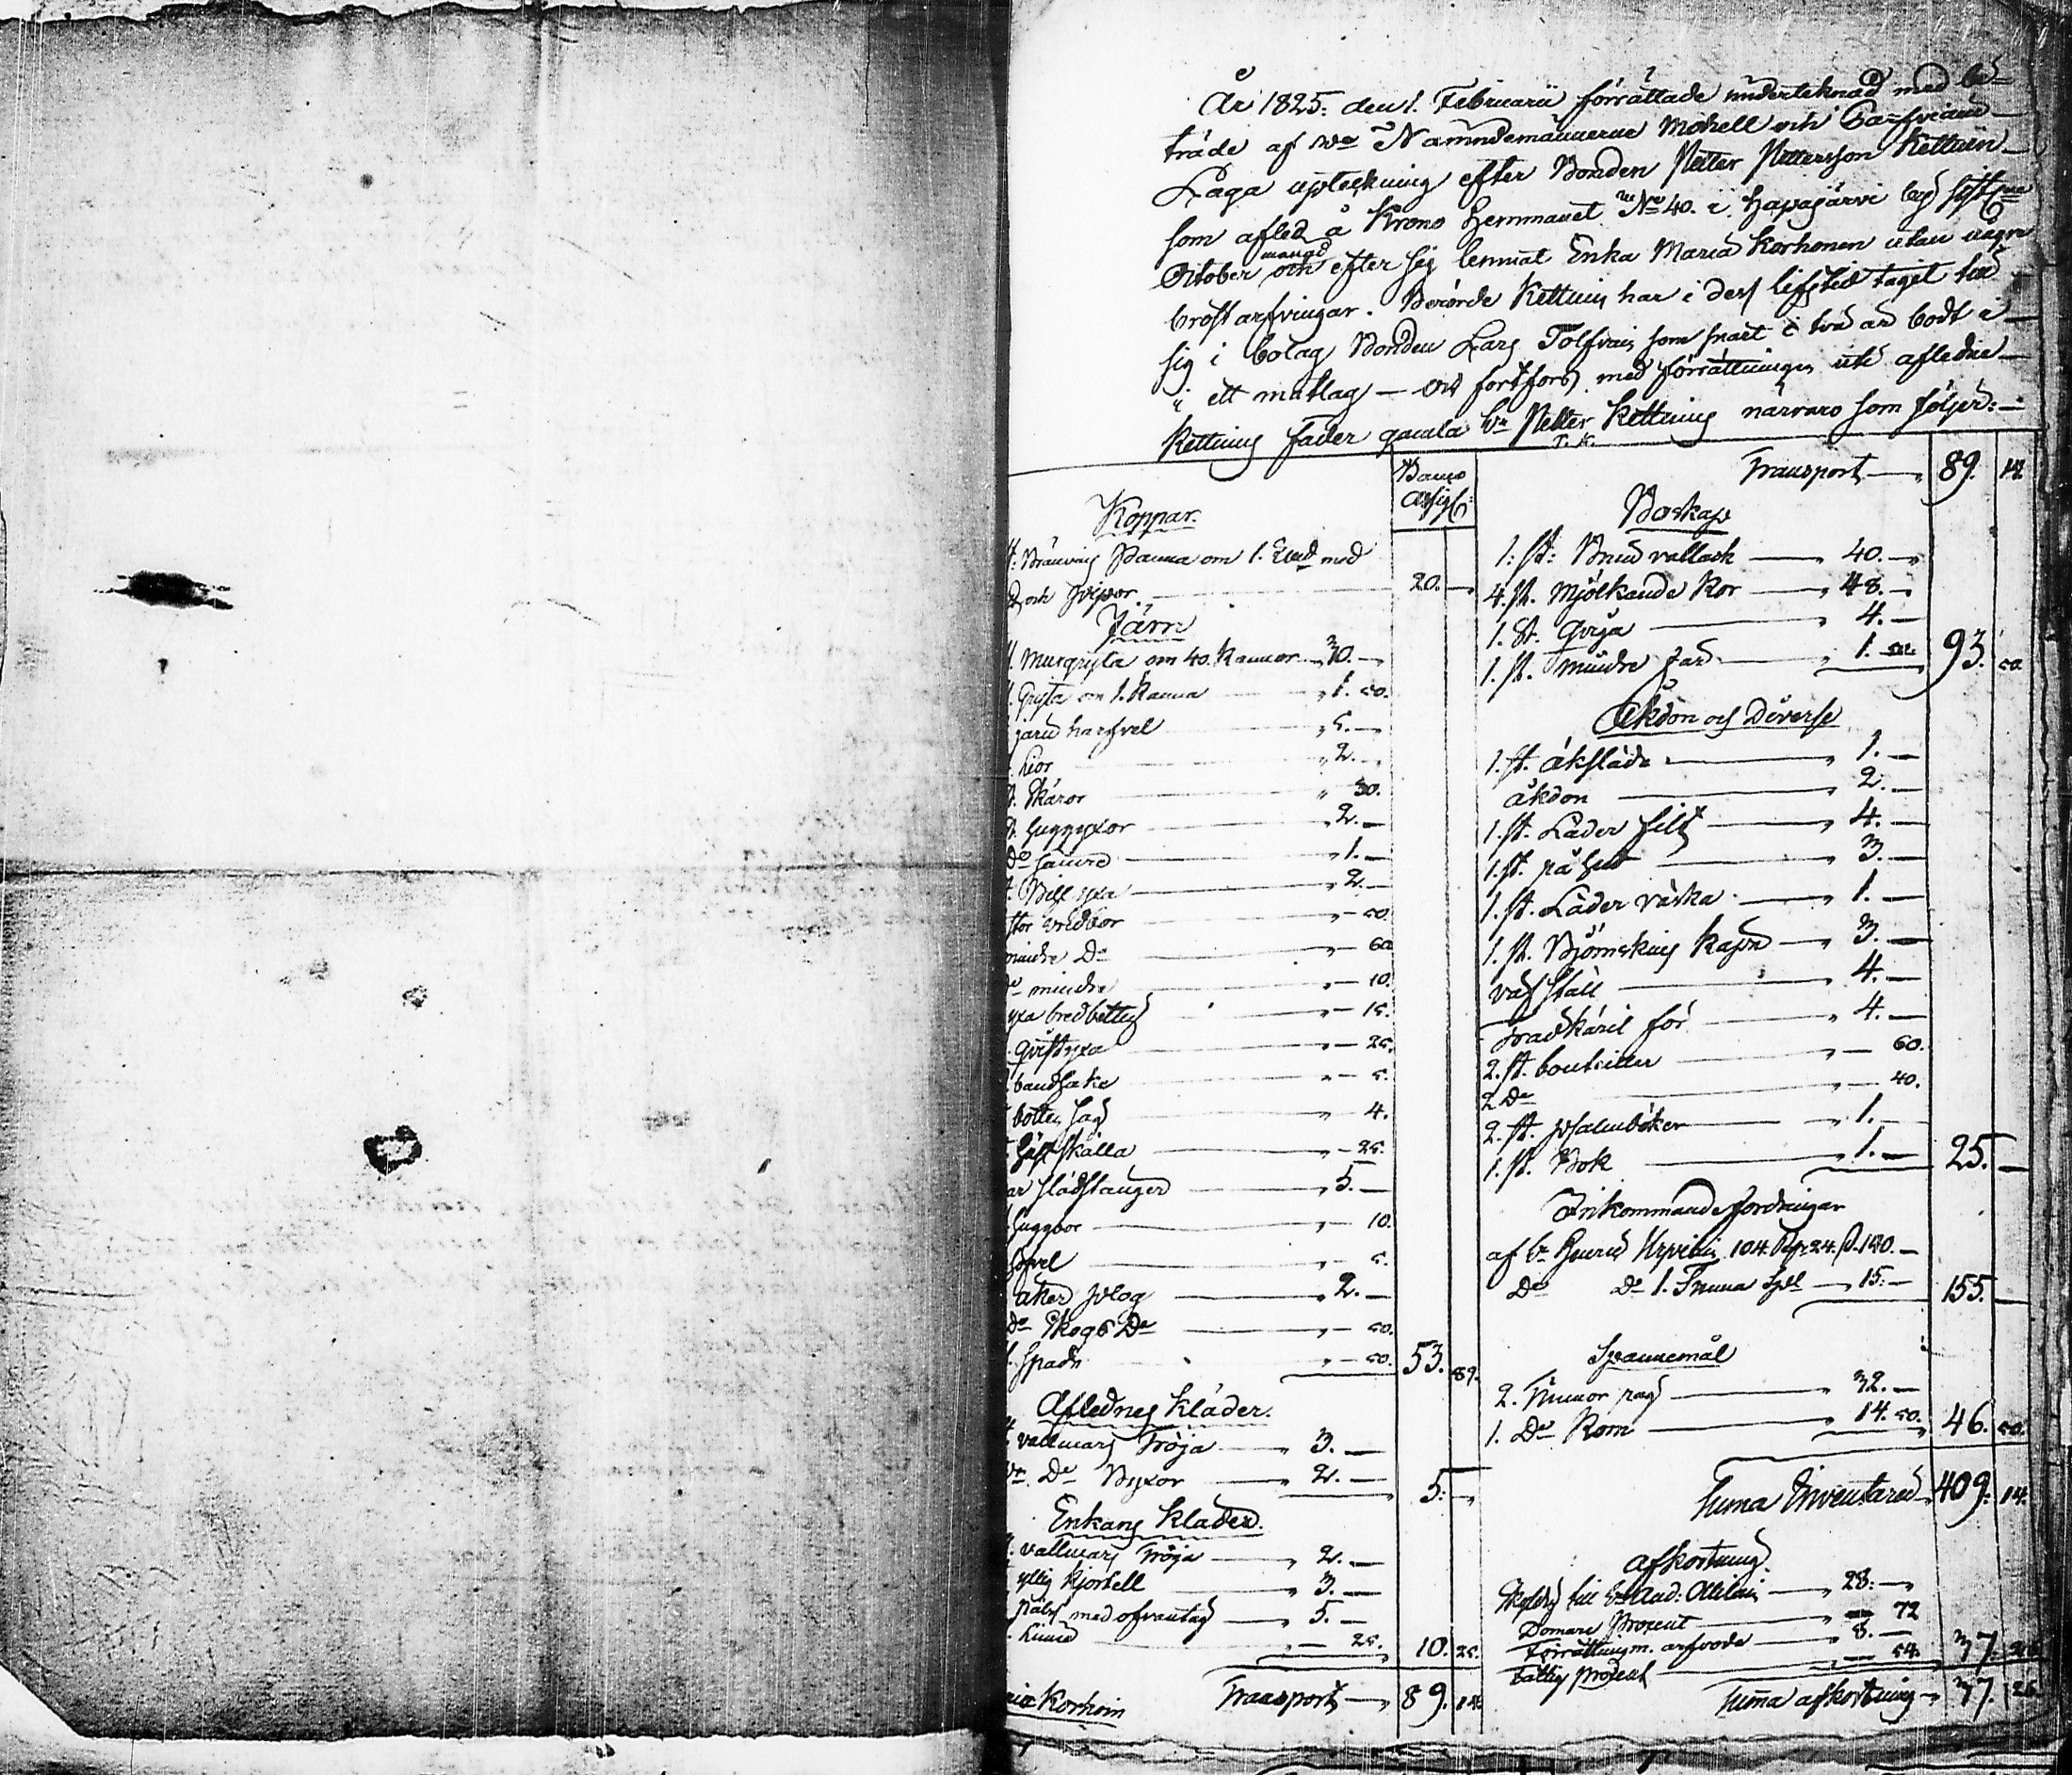 År 1825: den 1. Februarii förrättade undertecknad med bi-
träde af wa Nämndemännerne Mohell och
Laga upteckning efter Bonden Petter Pettersson Kettuin
som afled å Krono Hemmanet No 40. i Hapajärvi by sistne
October månad och efter sig lemnat Enka Maria Korhonen utan några
bröst arfvingar. Berörde Kettuin har i dess lifstid taget till
sig i bolag Bonden Lars Tolfvain som snart i två år bodt i
i ett matlag — och fortfors med förrättningen uti aflednes
Kettuins Fader gamla bn Petter Kettuins närvaro som följer:
Banco
Assign:
Koppar.
Bränvins Panna om 1. med
och pipor. 20. —
Järn
Murgryta om 40. Kannor 30. —
Gryta om 1. Kanna 1. 50.
järn harfvel 5. —
Lior 2. —
Skäror 30.
st. huggyxor 2. —
do sämre 1. —
Bill yxa 2. —
stor vridbor — 50.
mindre Do — 60
do mindre — 10.
yxa bredbettig — 15.
qvistyxa — 25.
bandhake — 5.
botten såg 4.
häst skälla — 25.
ar slädstänger 5. —
huggbor — 10.
hofvel — 5.
åker plog 2. —
do Skogs Do — 50.
Spade — 50. 53. 89.
Aflednes Kläder.
vallmars Tröja 3. —
Do Byxor 2. — 5. —
Enkans Kläder.
vallmars Tröja 2. —
yllig Kjortell 3. —
päls med ofvantag 5. —
— 25. 10. 25.
ria Korhoin Transport 89. 14.
Transport 89. 14
Boskap
1. st: Brun vallack 40. —
4. st. Mjölkande Kor 48. —
1. st. qviga 4. —
1. st. mindre får 1. 50. 93. 50.
Åkdon och Diverse
1. st. åksläde 1. —
åkdon 2. —
1. st. Läder filt 4. —
1. st. rå hud 3. —
1. st. Läder väska 1. —
1. st. Björnskins kapa 3. —
väfställ 4. —
trädkäril för 4. —
2. st. bouteiller — 60.
2 Do — 40.
2. st. psalmböker 1. —
1. st. Bok 1. — 25. —
Inkommande fordringar
af bn 104. Rp. 24. 140. —
Do Do 1. Tunna 15. — 155. —
Spannemål
2. Tunnor råg 32. —
1. Do Korn 14. 50. 46. 50.
Suma Inventarie 409. 14.
Afkortning.
till bn And: 28. —
Domare procent — 72
Förrättningm. arfvode 8. —
Fattig procent — 54. 37. 26
Suma afkortning 37. 26